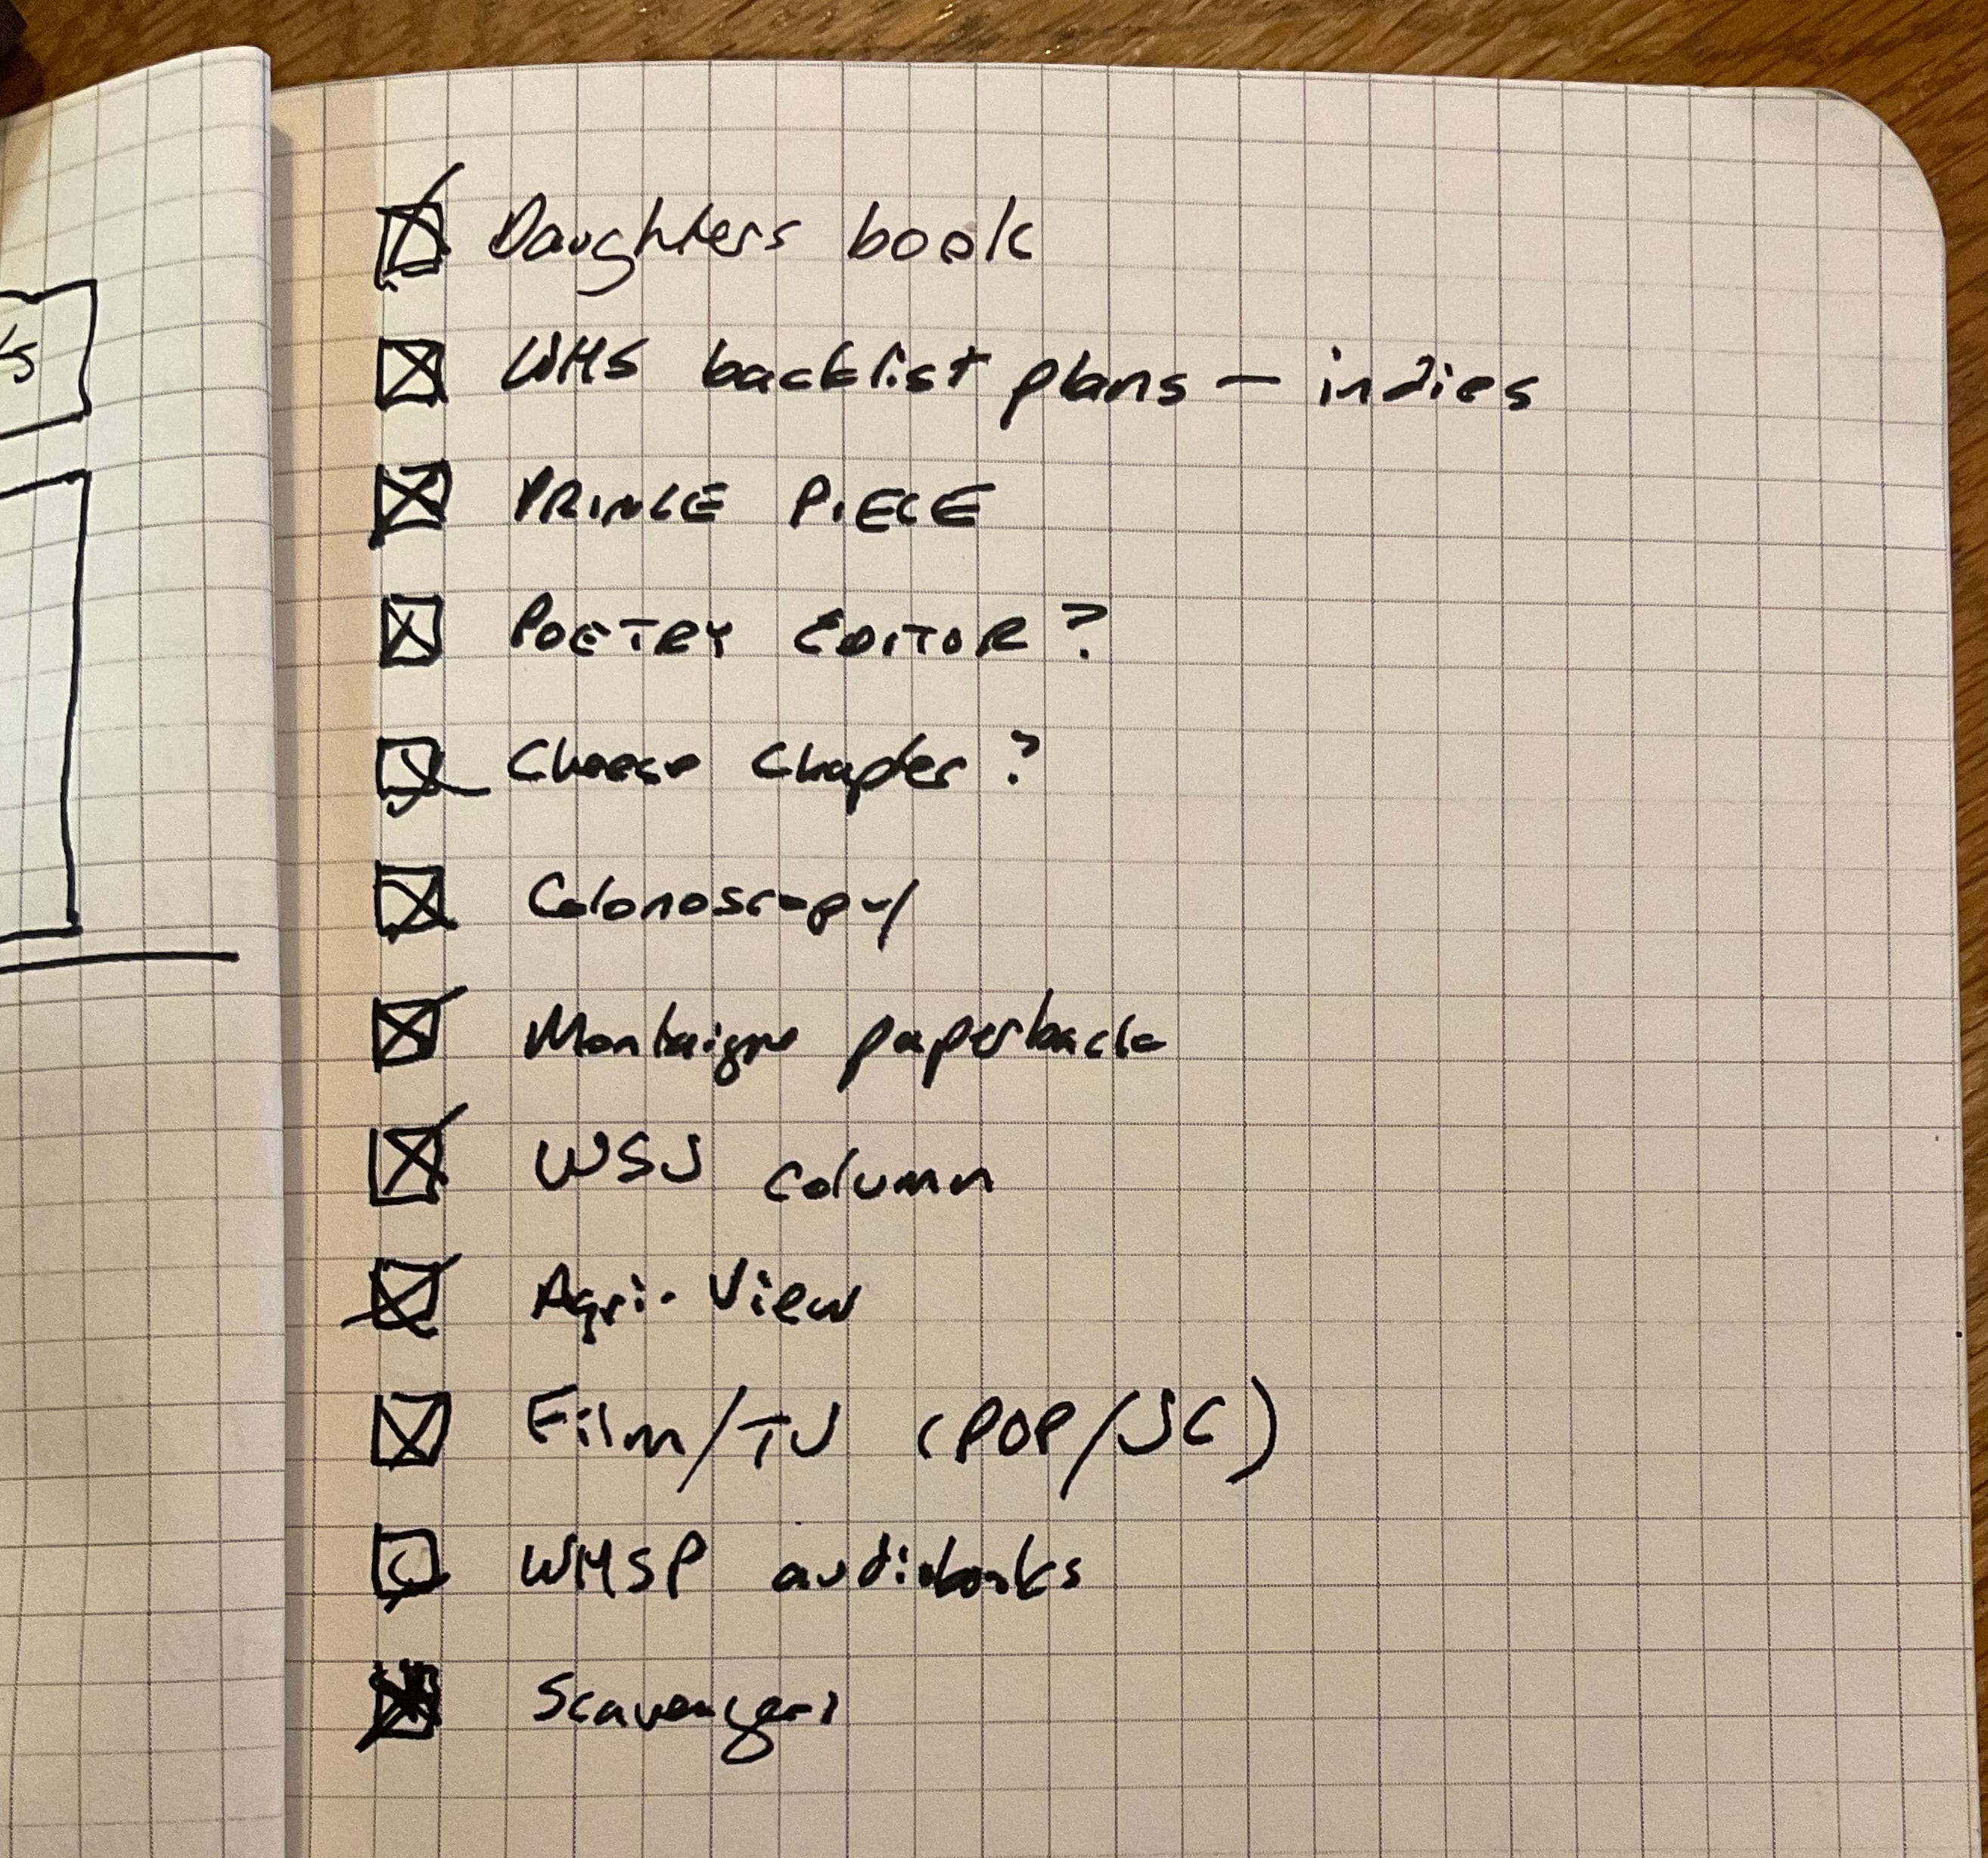 Daughters book
WMS backlist plans — indies
PRINCE PIECE
POETRY EDITOR?
Cheese Chapter?
Colonoscopy
Montaigne paperback
WSJ column
Agri-View
Film/TV (POP/JC)
WMSP audiobooks
Scavengers